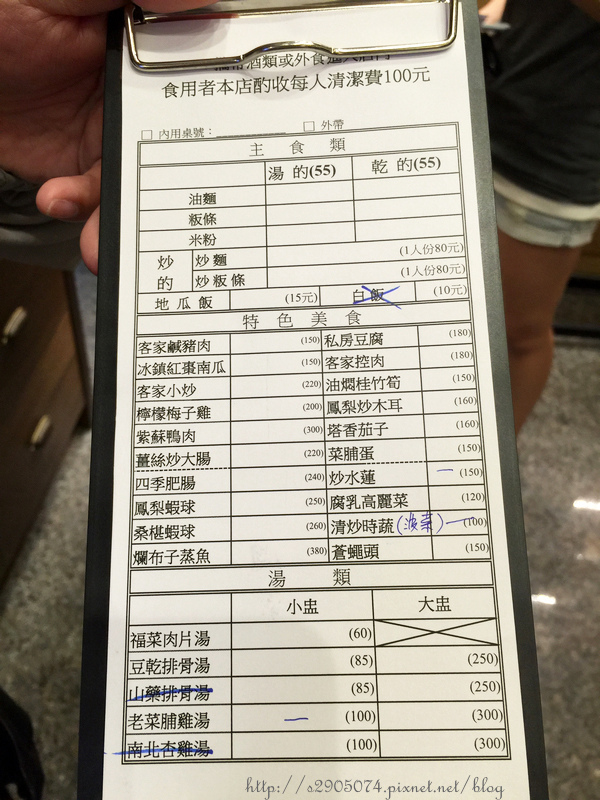 食用者本店酌收每人清潔費100元
□ 內用桌號：　□ 外帶
主 食 類
湯 的(55) 乾 的(55)
油麵
粄條
米粉
炒的 炒 麵 (1人份80元)
炒 粄 條 (1人份80元)
地 瓜 飯 (15元) 白飯 (10元)
特 色 美 食
客家鹹豬肉 (150) 私房豆腐 (180)
冰鎮紅棗南瓜 (150) 客家控肉 (180)
客家小炒 (220) 油燜桂竹筍 (150)
檸檬梅子雞 (200) 鳳梨炒木耳 (160)
紫蘇鴨肉 (300) 塔香茄子 (160)
薑絲炒大腸 (220) 菜脯蛋 (150)
四季肥腸 (240) 炒水蓮 一 (150)
鳳梨蝦球 (250) 腐乳高麗菜 (120)
桑椹蝦球 (260) 清炒時蔬 (菠菜) 一 (100)
爛布子蒸魚 (380) 蒼蠅頭 (150)
湯 類
小盅 大盅
福菜肉片湯 (60)
豆乾排骨湯 (85) (250)
山藥排骨湯 (85) (250)
老菜脯雞湯 一 (100) (300)
南北杏雞湯 (100) (300)
http://s2905074.pixnet.net/blog